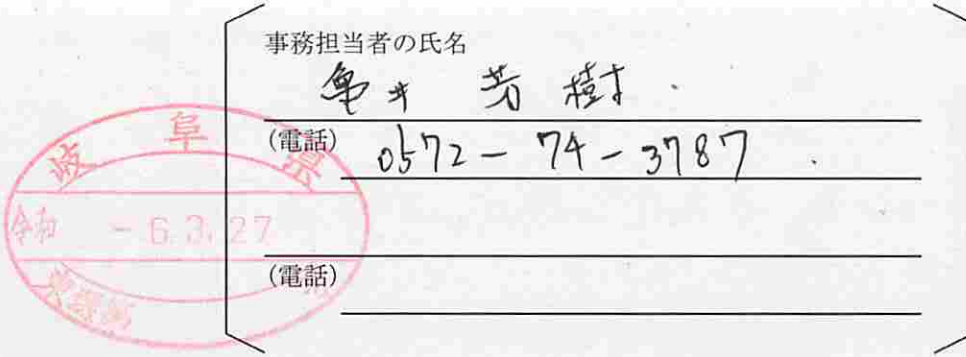 事務担当者の氏名
亀井 芳樹
(電話) 0572-74-3787
(電話)
岐阜県
令和 -6.3.27